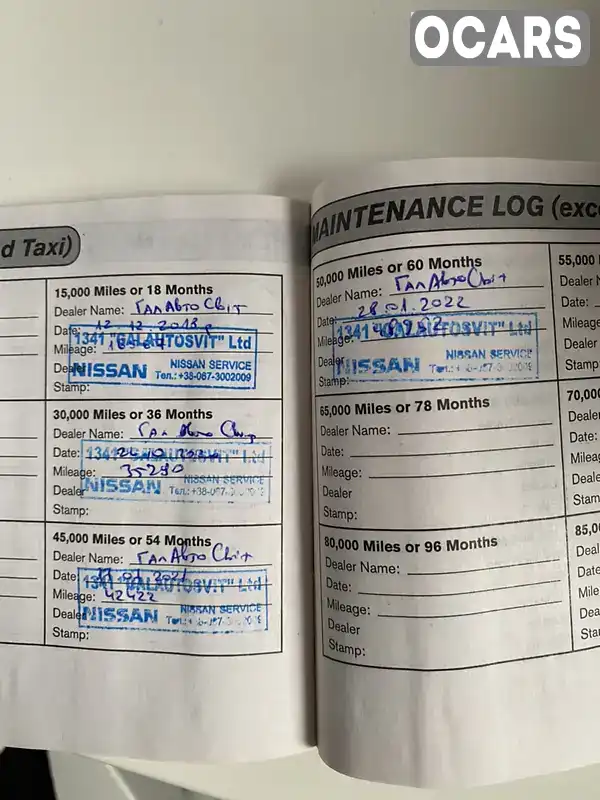 OCARS
d Taxi)
15,000 Miles or 18 Months
Dealer Name: ГалАвтоСвіт
Date: 12.12.2018р
Mileage:
1341 "GALAUTOSVIT" Ltd
Dealer
NISSAN NISSAN SERVICE
Тел.:+38-067-3002009
Stamp:
30,000 Miles or 36 Months
Dealer Name: ГалАвтоСвіт
Date:
1341 "GALAUTOSVIT" Ltd
Mileage: 35290
NISSAN SERVICE
Dealer NISSAN Тел.:+38-067-3002009
Stamp:
45,000 Miles or 54 Months
Dealer Name: ГалАвтоСвіт
Date:
1341 "GALAUTOSVIT" Ltd
Mileage: 42422
NISSAN SERVICE
Dealer NISSAN
Stamp:
MAINTENANCE LOG (exce
50,000 Miles or 60 Months
Dealer Name: ГалАвтоСвіт
Date: 28.01.2022
1341 "GALAUTOSVIT" Ltd
Mileage:
NISSAN SERVICE
Dealer NISSAN
Stamp:
65,000 Miles or 78 Months
Dealer Name:
Date:
Mileage:
Dealer
Stamp:
80,000 Miles or 96 Months
Dealer Name:
Date:
Mileage:
Dealer
Stamp:
55,000
Dealer N
Date:
Mileage
Dealer
Stamp
70,00
Deale
Date:
Milea
Deale
Stam
85,0
Deal
Date
Mile
Dea
Sta